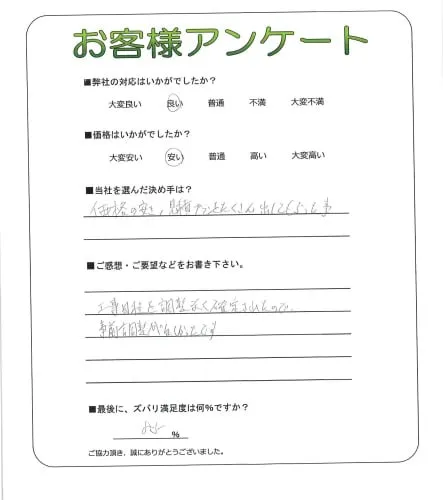 お客様アンケート
■弊社の対応はいかがでしたか？
大変良い 良い 普通 不満 大変不満
■価格はいかがでしたか？
大変安い 安い 普通 高い 大変高い
■当社を選んだ決め手は？
価格の安さ、プランをたくさん出してもらった事
■ご感想・ご要望などをお書き下さい。
工事日程を調整なく確定されたので、
事前に調整が
■最後に、ズバリ満足度は何％ですか？
％
ご協力頂き、誠にありがとうございました。